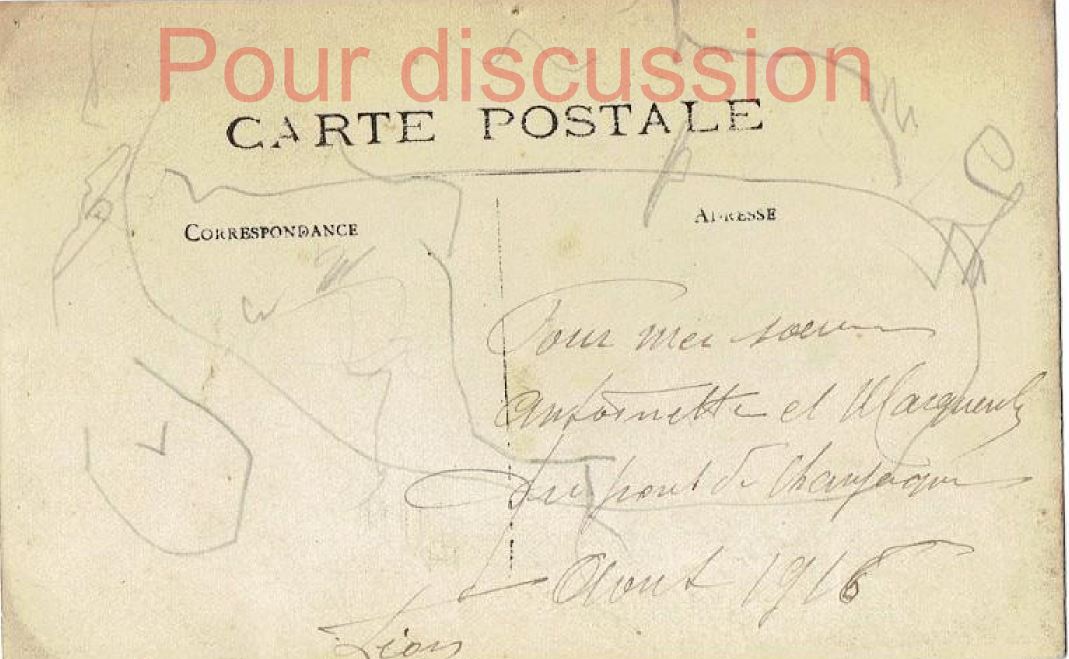 Pour discussion
CARTE POSTALE
CORRESPONDANCE
ADRESSE
Pour mes soeurs
Antoinette et Marguerite
du front de Champagne
Aout 1916
Léon